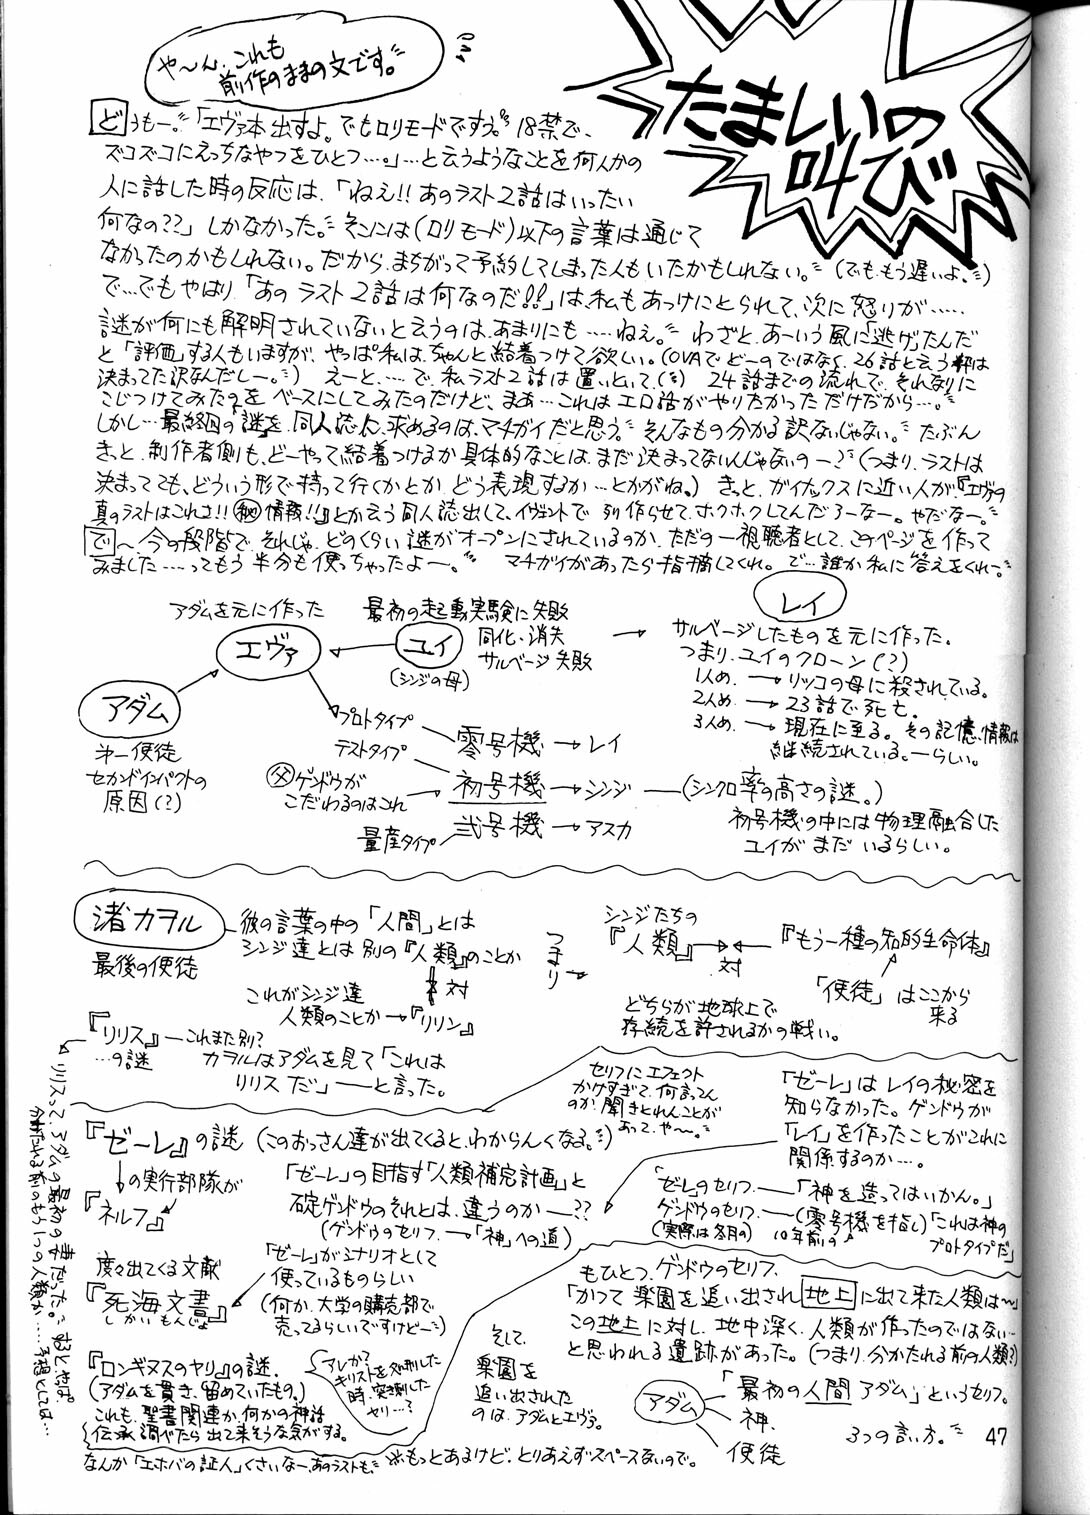 や～ん、これも
前作のままの文です。
たましいの
叫び
どうもー。「エヴァ本出すよ。でもロリモードですぅ。18禁で、
ズコズコにえっちなやつをひとつ…。」…と云うようなことを何人かの
人に話した時の反応は、「ねえ!!あのラスト2話はいったい
何なの??」しかなかった。そこには(ロリモード)以下の言葉は通じて
なかったのかもしれない。だから、まちがって予約してしまった人もいたかもしれない。(でも、もう遅いよ。)
で…でもやはり「あのラスト2話は何なのだ!!」は、私もあっけにとられて、次に怒りが……
謎が何にも解明されていないと云うのは、あまりにも……ねぇ。わざと、あーいう風に「逃げ」たんだ
と「評価」する人もいますが、やっぱ私は、ちゃんと結着つけて欲しい。(OVAでどーのではなく、26話と云う枠は
決まってた訳なんだしー。)えーと、……で、私ラスト2話は置いといて、24話までの流れで、それなりに
こじつけてみたのをベースにしてみたのだけど、まぁ…これはエロ話がやりたかっただけだから…。
しかし…最終回の「謎」を、同人誌に求めるのは、マチガイだと思う。そんなもの分かる訳ないじゃない。たぶん
きっと、制作者側も、どーやって結着つけるか具体的なことは、まだ決まってないんじゃないの―?(つまり、ラストは
決まってても、どういう形で持って行くかとか、どう表現するか…とかがね。)きっと、ガイナックスに近い人が『エヴァの
真のラストはこれさ!!㊙情報!!』とか云う同人誌出して、イヴェントで列作らせて、ホクホクしてんだろーなー。やだなー。
で～、今の段階で、それじゃ、どのくらい謎がオープンにされているのか、ただの一視聴者として、このページを作って
みました……ってもう半分も使っちゃったよー。マチガイがあったら指摘してくれ。で…誰か私に答えをくれー。
アダムを元に作った
エヴァ
最初の起動実験に失敗
ユイ
同化、消失
サルベージ失敗
(シンジの母)
レイ
サルベージしたものを元に作った。
つまり、ユイのクローン(?)
1人め、→リツコの母に殺されている。
2人め、→23話で死亡。
3人め、→現在に至る。その記憶、情報は
継続されている。―らしい。
アダム
第一使徒
セカンドインパクトの
原因(?)
プロトタイプ
零号機→レイ
テストタイプ
父ゲンドウが
こだわるのはこれ
初号機→シンジ―(シンクロ率の高さの謎。)
初号機の中には物理融合した
ユイがまだいるらしい。
量産タイプ
弐号機→アスカ
渚カヲル
最後の使徒
彼の言葉の中の「人間」とは
シンジ達とは別の『人類』のことか
対
これがシンジ達
人類のことか→『リリン』
つまり→
シンジたちの
『人類』
対
『もう一種の知的生命体』
「使徒」はここから
来る
どちらが地球上で
存続を許されるかの戦い。
『リリス』―これまた別?
…の謎
カヲルはアダムを見て「これは
リリスだ」―と言った。
リリスって、アダムの最初の妻だった。するとやっぱ、
分かたれる前のもう1つの人類か……予想としては…
『ゼーレ』の謎(このおっさん達が出てくると、わからんくなる。)
セリフにエフェクト
かけすぎて、何言ってん
のか、聞きとれんことが
あって、や～。
「ゼーレ」はレイの秘密を
知らなかった。ゲンドウが
「レイ」を作ったことがこれに
関係するのか…。
の実行部隊が
『ネルフ』
「ゼーレ」の目指す「人類補完計画」と
碇ゲンドウのそれとは、違うのか―??
(ゲンドウのセリフ、―「神」への道)
「ゼーレ」のセリフ、―「神を造ってはいかん。」
ゲンドウのセリフ、―(零号機を指し)「これは神の
(実際は冬月の)10年前の
プロトタイプだ」
度々出てくる文献
『死海文書』
しかいもんじょ
「ゼーレ」がシナリオとして
使っているものらしい
(何か、大学の購売部で
売ってるらしいですけどー)
もひとつ、ゲンドウのセリフ、
「かつて楽園を追い出され地上に出て来た人類は～」
この地上に対し、地中深く、人類が作ったのではない…
と思われる遺跡があった。(つまり、分かたれる前の人類?)
『ロンギヌスのヤリ』の謎、
(アダムを貫き、留めていたもの。)
これも、聖書関連か、何かの神話
伝承調べたら出て来そうな気がする。
アレか?
キリストを処刑した
時、突き刺した
ヤリ…?
そして、
楽園を
追い出された
のは、アダムとエヴァ。
アダム
「最初の人間アダム」というセリフ。
神
使徒
3つの言い方。
なんか「エホバの証人」くさいなー、あのラストも、
※もっとあるけど、とりあえずスペースないので。
47